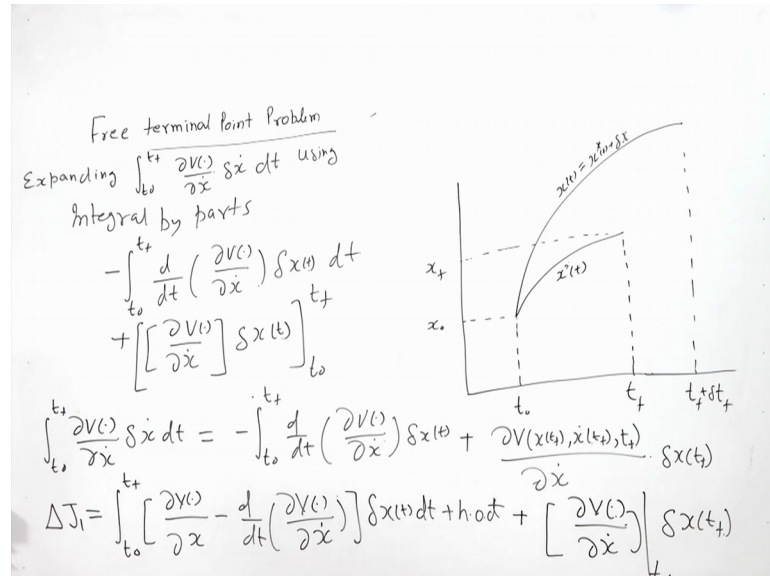 Free terminal Point Problem
Expanding ∫_{t₀}^{t_f} ∂V(·)/∂ẋ δẋ dt using
Integral by parts
-∫_{t₀}^{t_f} d/dt ( ∂V(·)/∂ẋ ) δx(t) dt
+[ [ ∂V(·)/∂ẋ ] δx(t) ]_{t₀}^{t_f}
x(t) = x*(t)+δx
x*(t)
x_f
x₀
t₀ t_f t_f+δt_f
∫_{t₀}^{t_f} ∂V(·)/∂ẋ δẋ dt = -∫_{t₀}^{t_f} d/dt ( ∂V(·)/∂ẋ ) δx(t) + ∂V(x(t_f),ẋ(t_f),t_f)/∂ẋ · δx(t_f)
ΔJ₁= ∫_{t₀}^{t_f} [ ∂V(·)/∂x - d/dt ( ∂V(·)/∂ẋ ) ] δx(t)dt + h.o.t + [ ∂V(·)/∂ẋ ]| δx(t_f)